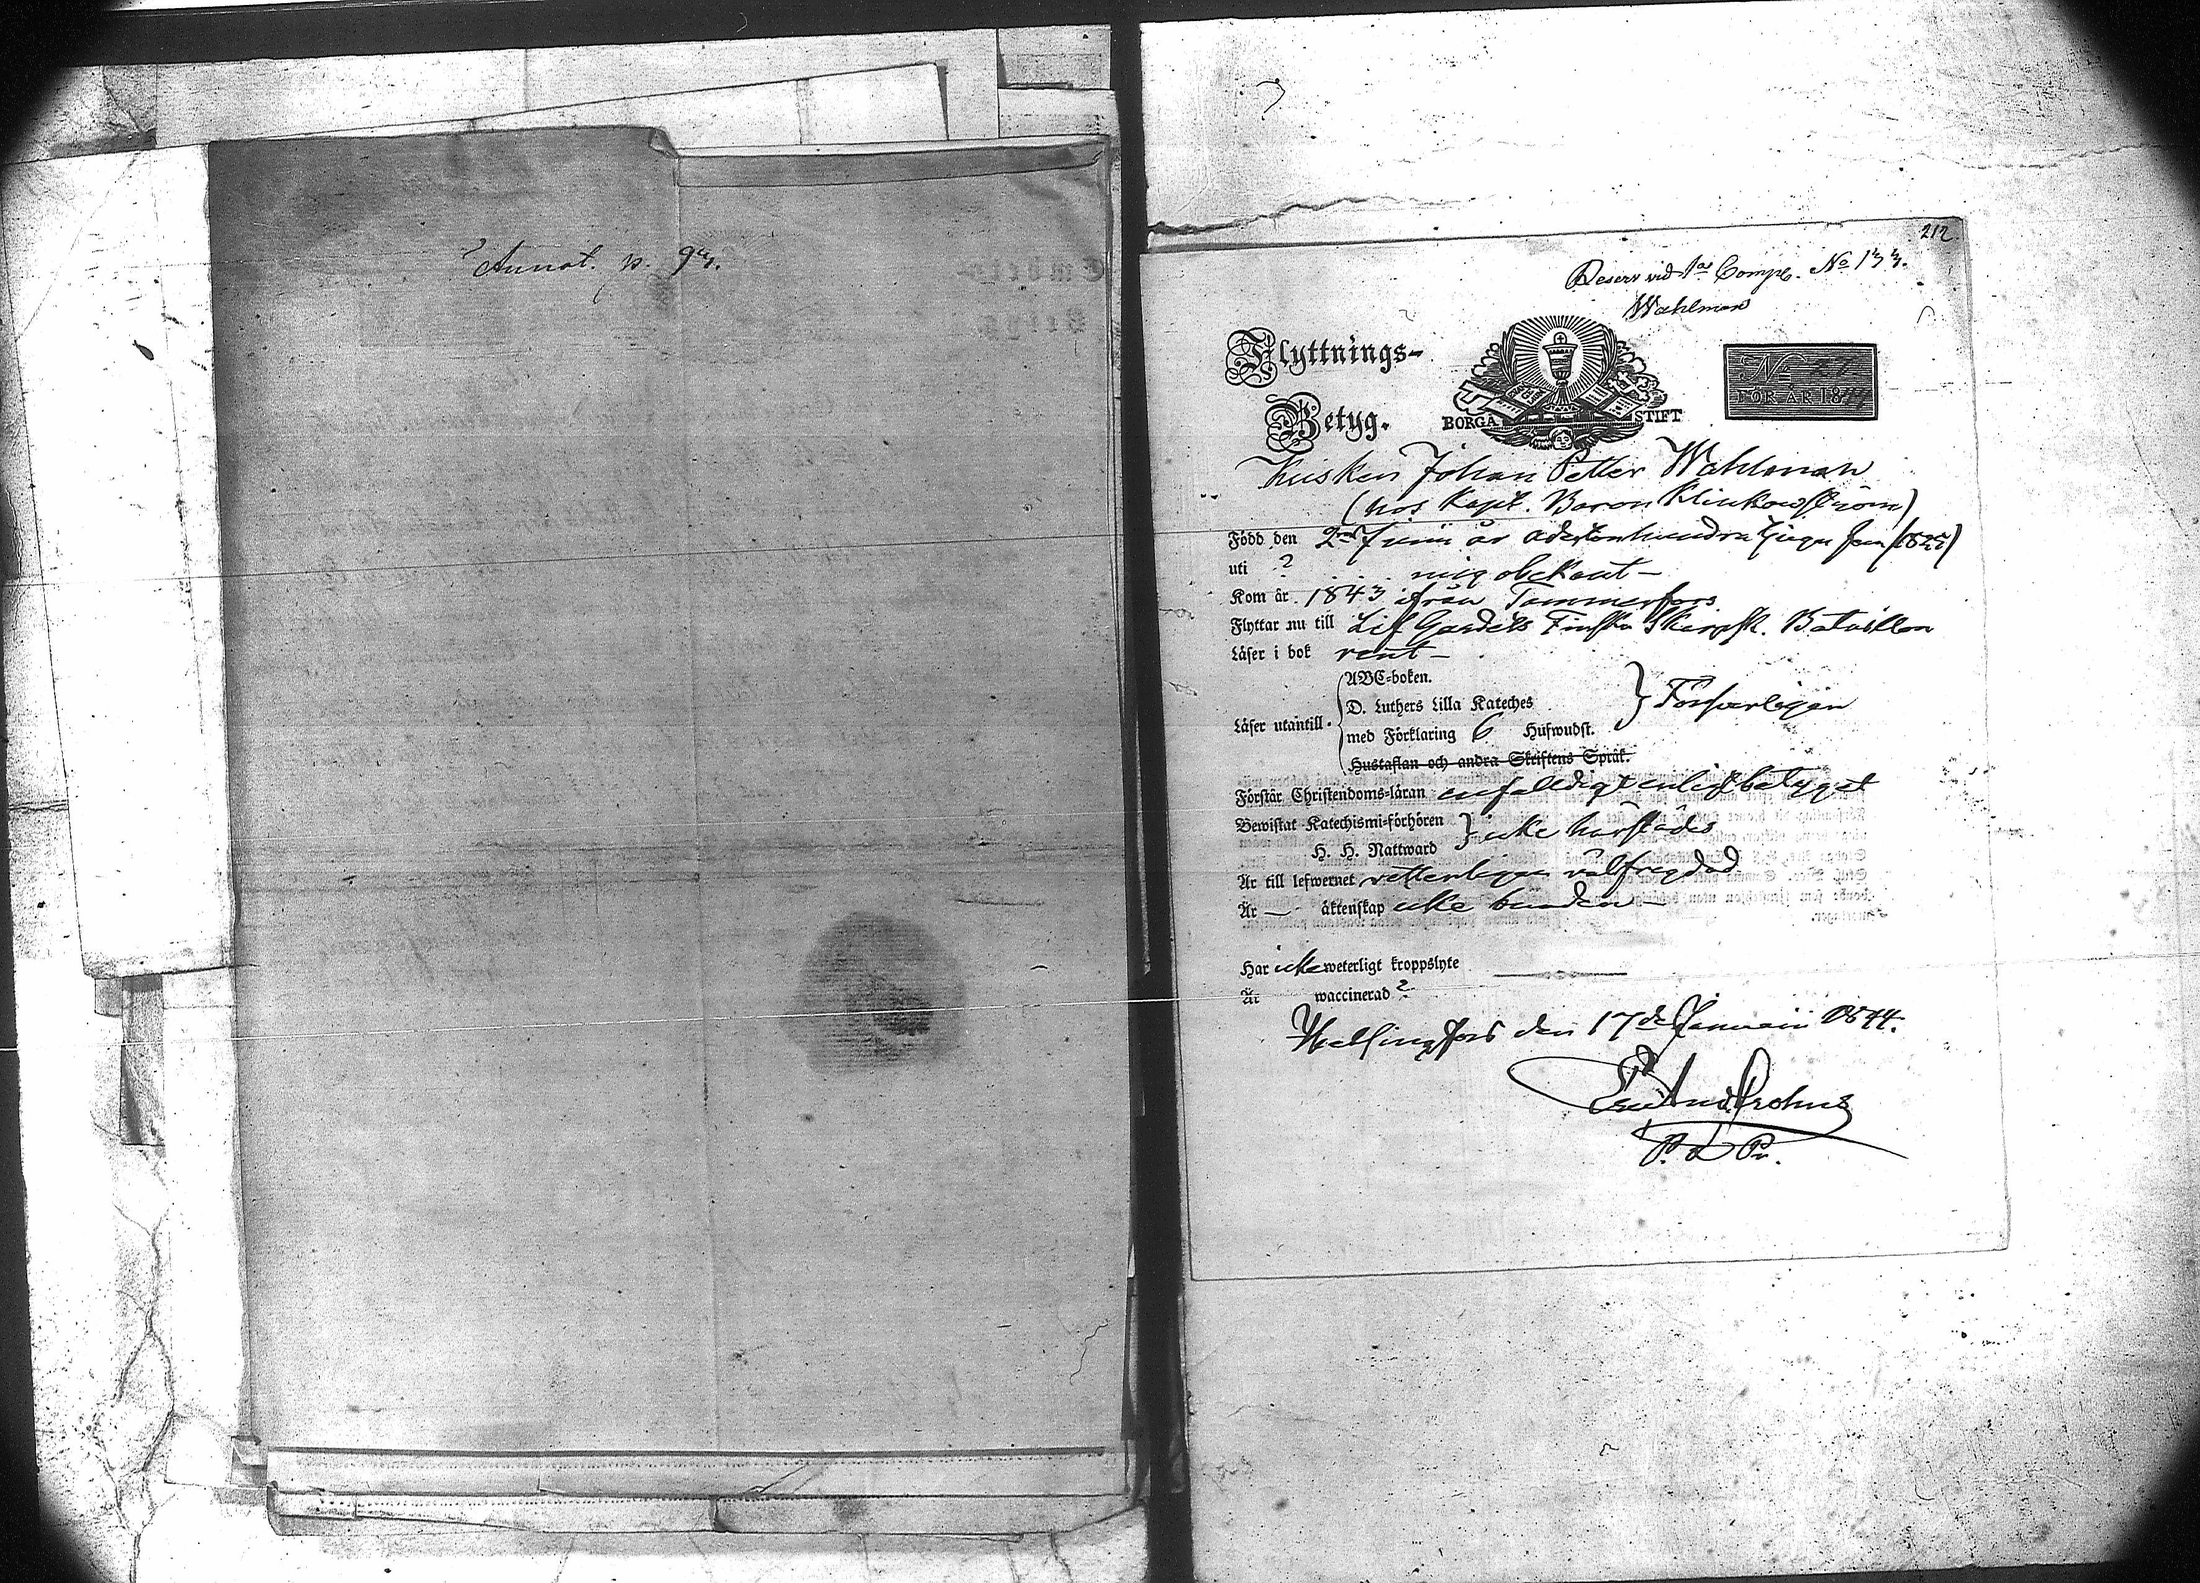 Annot. p. 93.
212.
Reserv vid 1a Comp. No 133.
Wahlman
Flyttnings-
Betyg.
BORGÅ STIFT
No 27
FÖR ÅR 1844
Kusken Johan Petter Wahlman
(hos Kapt. Baron Klinkowström)
Född den 2 Junii år adertonhundra tjugu
uti ? mig obekant —
Kom år 1843 ifrån Tammerfors
Flyttar nu till Lif Gardets Finska Skarpsk. Bataillon
Läser i bok rent —
ABC-boken.
D. Luthers Lilla Kateches
Läser utantill. med Förklaring 6 Hufwudst. } Försvarligen
Hustaflan och andra Skriftens Språk.
Förstår Christendoms-läran enfaldigt enligt betyget
Bewistat Katechismi-förhören
H. H. Nattward } icke härstädes
Är till lefwernet vetterligen välfrejdad
Är — äktenskap icke bunden —
Har icke weterligt kroppslyte
Är waccinerad ?
Helsingfors den 17de Januarii 1844.
Crohns